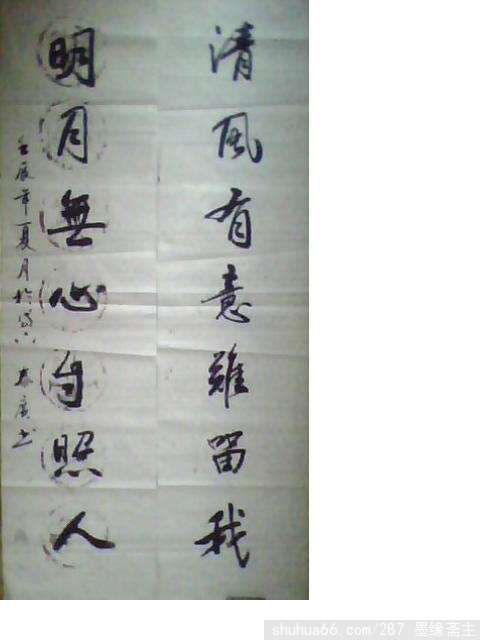 清風有意難留我
明月無心自照人
壬辰年夏月於
shuhua66.com/287 墨缘斋主